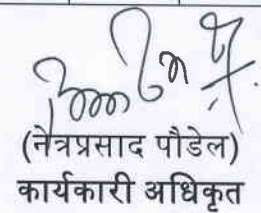 (नेत्रप्रसाद पौडेल)
कार्यकारी अधिकृत